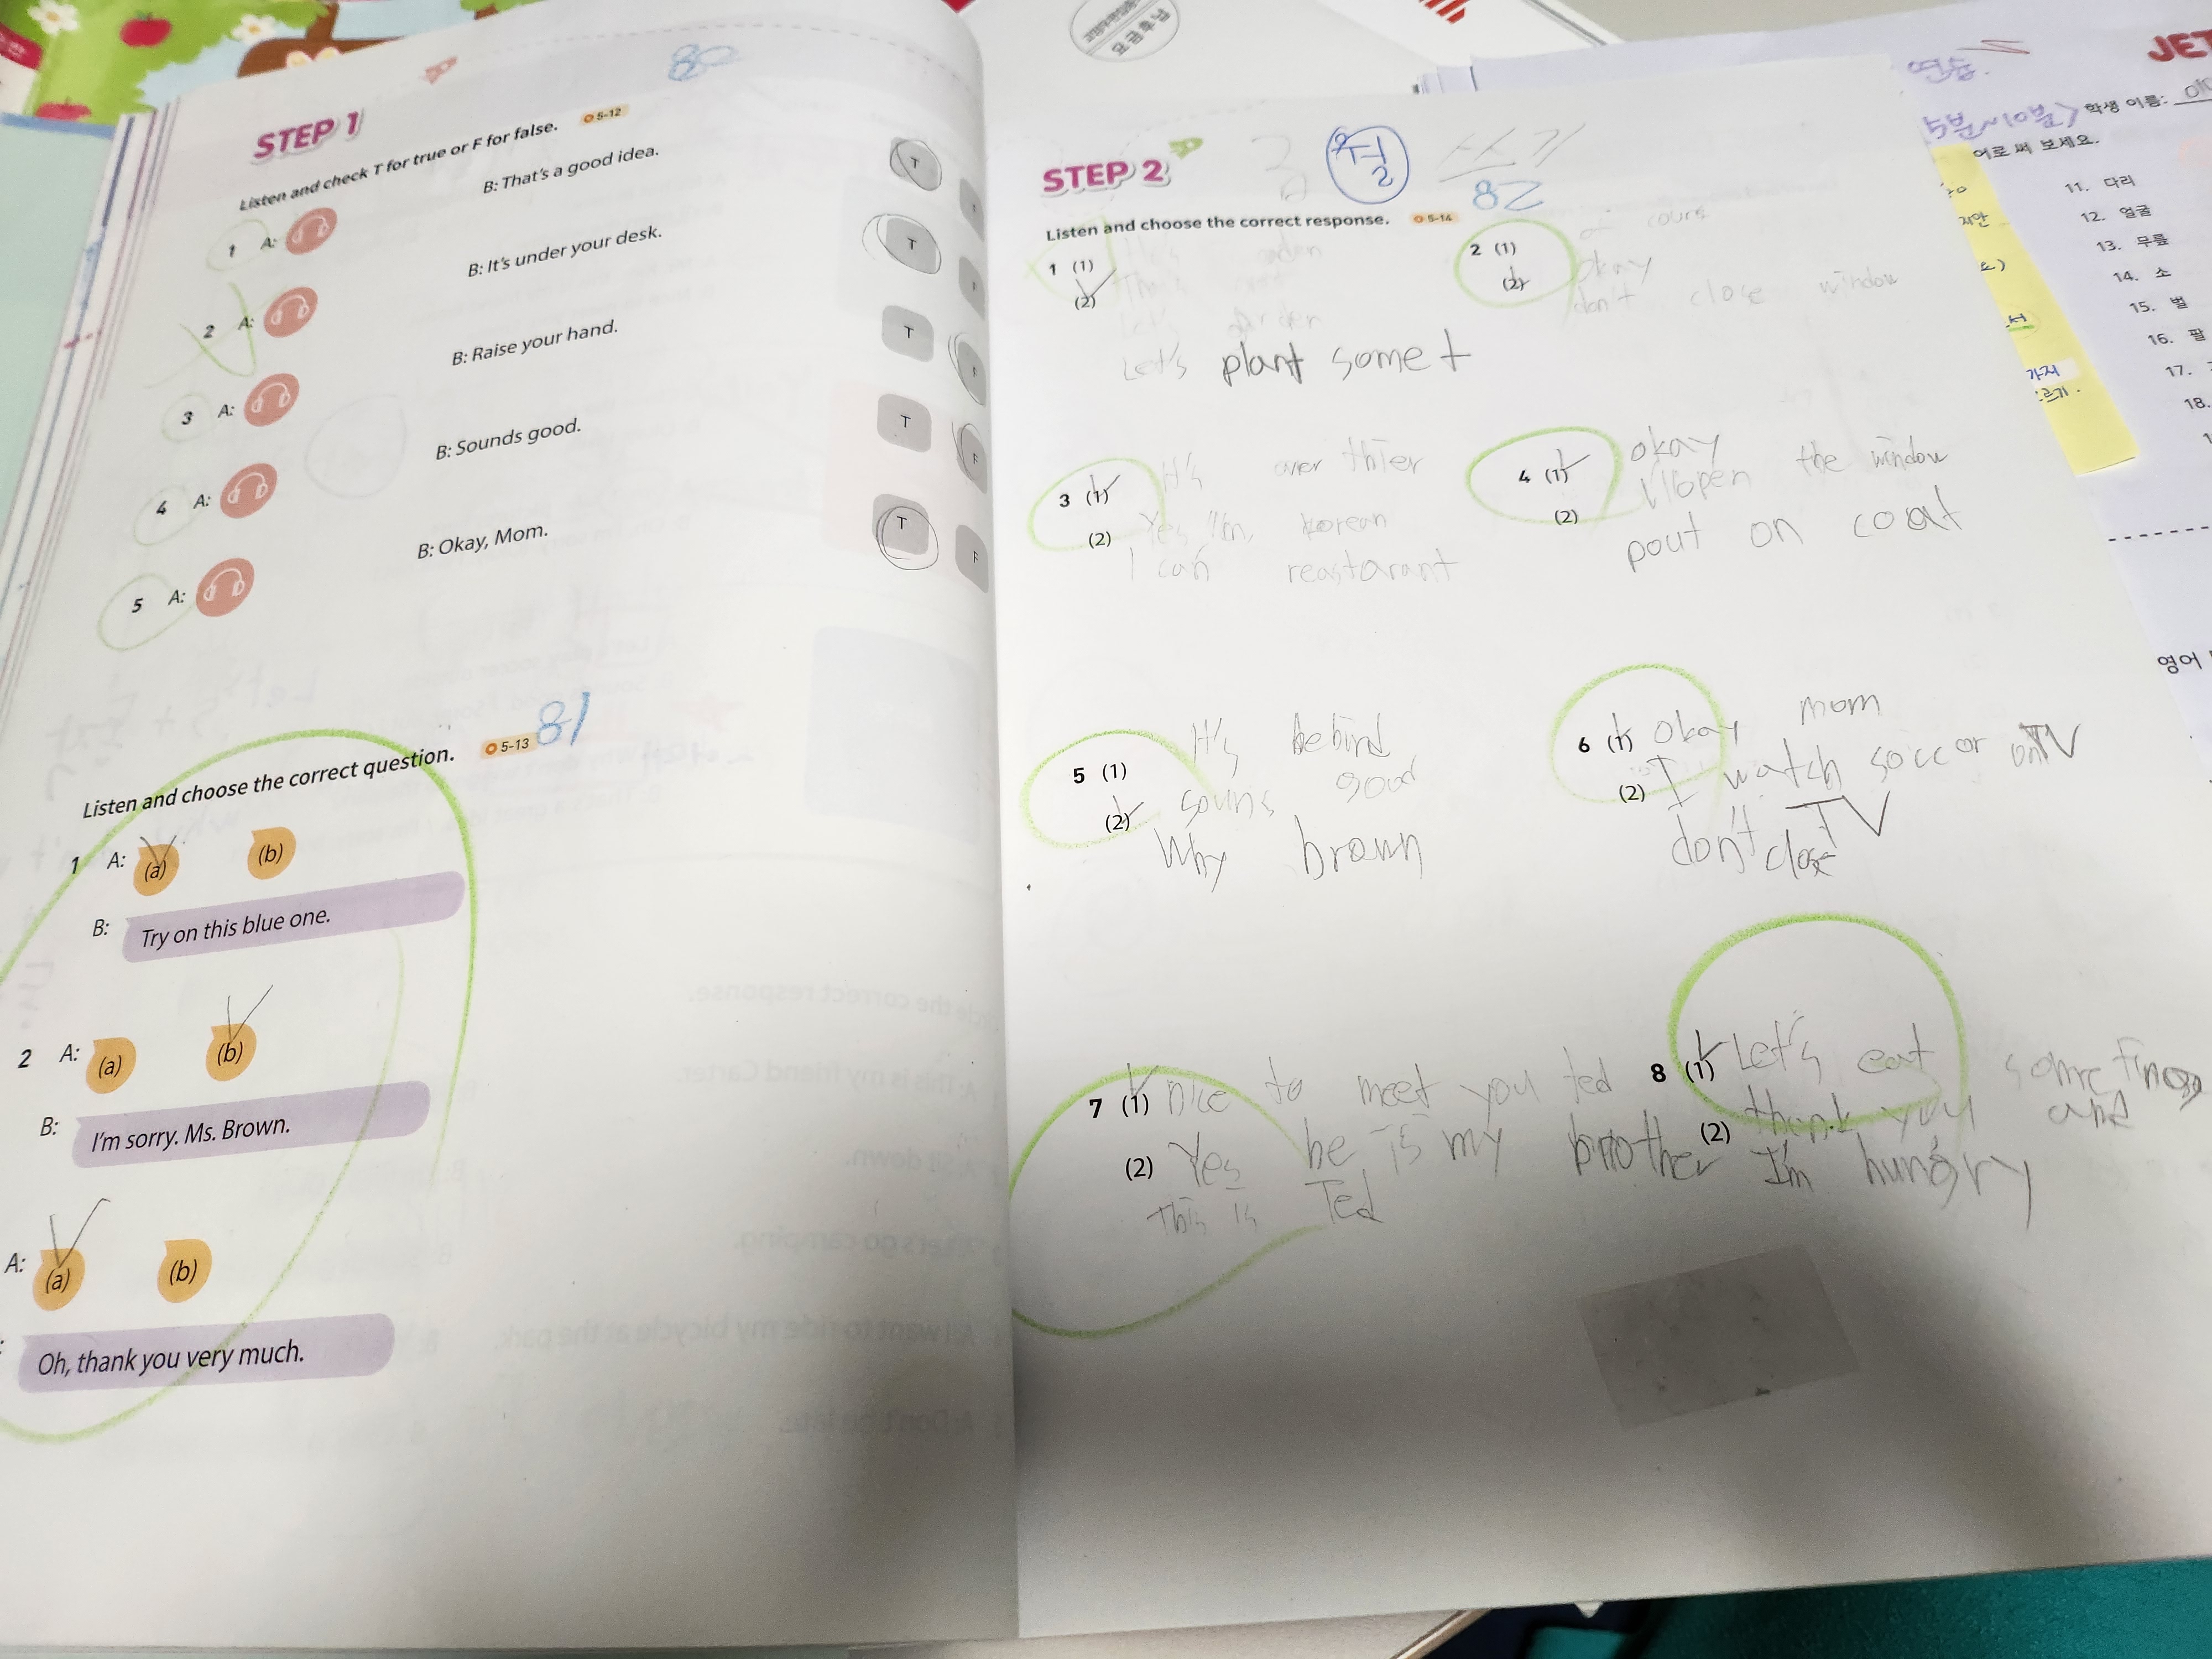 80
STEP 1
Listen and check T for true or F for false. 5-12
1 A: B: That's a good idea. T
2 A: B: It's under your desk. T
3 A: B: Raise your hand. T F
4 A: B: Sounds good. T F
5 A: B: Okay, Mom. T F
Listen and choose the correct question. 5-13 81
1 A: (a) (b)
B: Try on this blue one.
2 A: (a) (b)
B: I'm sorry. Ms. Brown.
A: (a) (b)
Oh, thank you very much.
STEP 2
82
Listen and choose the correct response. 5-14
1 (1)
(2)
Let's
Let's plant some t
2 (1) of cours
(2) okay
don't close window
3 (1) It's over thier
(2) Yes I'm korean
I can reastarant
4 (1) okay
I'll open the window
(2)
pout on coat
5 (1) It's behind
(2) souns good
Why brown
6 (1) okay mom
(2) I watch soccor on TV
don't close TV
7 (1) nice to meet you ted
(2) Yes he is my brother
This is Ted
8 (1) Let's eat
(2) thank you and
I'm hungry
JET
학생 이름:
어로 써 보세요.
11. 다리
12. 얼굴
13. 무릎
14. 소
15. 벌
16. 팔
17.
18.
영어